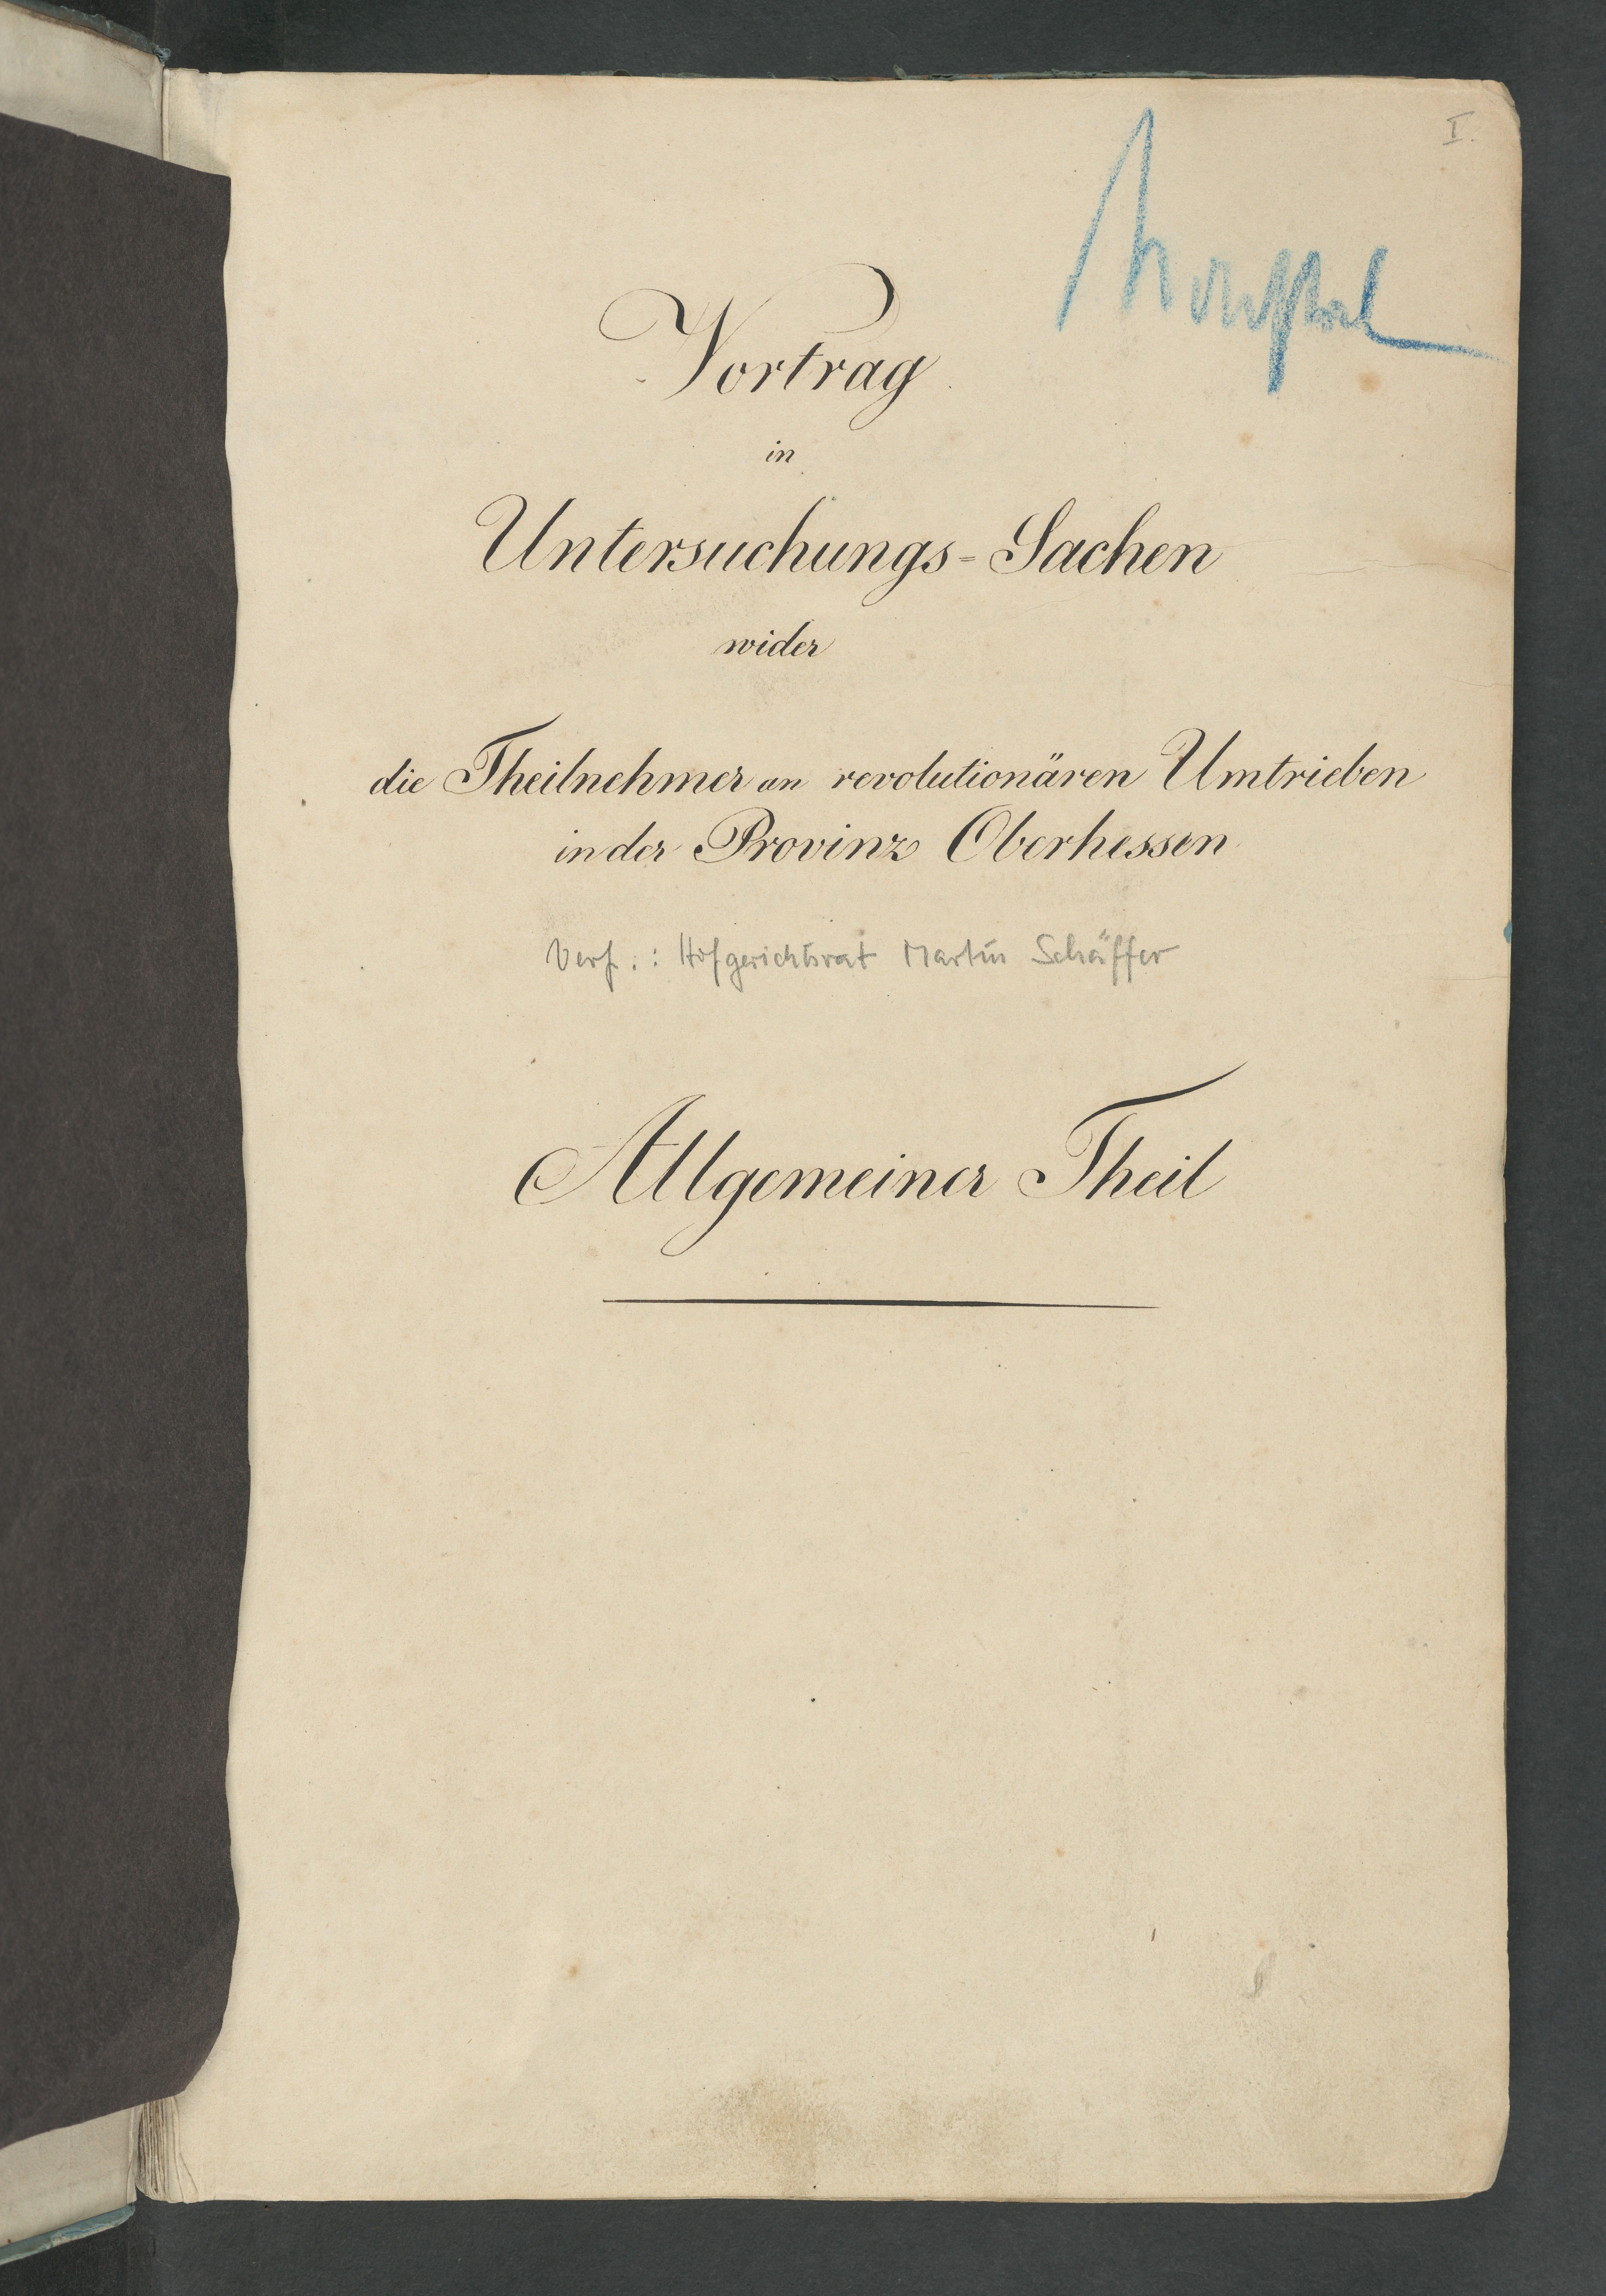 I.
Vortrag
in
Untersuchungs-Sachen
wider
die Theilnehmer an revolutionären Umtrieben
in der Provinz Oberhessen
Verf.: Hofgerichtsrat Martin Schäffer
Allgemeiner Theil